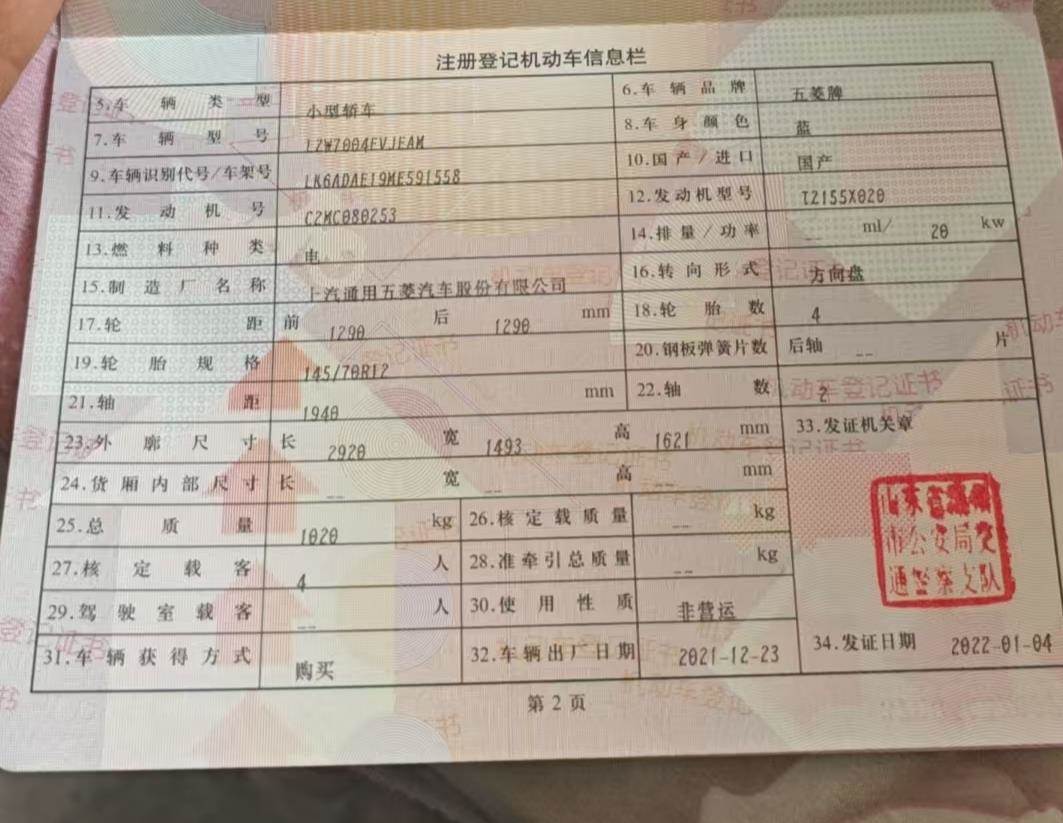 注册登记机动车信息栏
5.车辆类型 小型轿车 6.车辆品牌 五菱牌
7.车辆型号 LZW7004EVJEAM 8.车身颜色 蓝
9.车辆识别代号/车架号 LK6ADAE19ME591558 10.国产/进口 国产
11.发动机号 C2MC080253 12.发动机型号 TZ155X020
13.燃料种类 电 14.排量/功率 -- ml/ 20 kw
15.制造厂名称 上汽通用五菱汽车股份有限公司 16.转向形式 方向盘
17.轮距 前 1290 后 1290 mm 18.轮胎数 4
19.轮胎规格 145/70R12 20.钢板弹簧片数 后轴 -- 片
21.轴距 1940 mm 22.轴数 2
23.外廓尺寸 长 2920 宽 1493 高 1621 mm 33.发证机关章
24.货厢内部尺寸 长 -- 宽 -- 高 mm
25.总质量 1020 kg 26.核定载质量 -- kg
27.核定载客 4 人 28.准牵引总质量 -- kg
29.驾驶室载客 -- 人 30.使用性质 非营运
31.车辆获得方式 购买 32.车辆出厂日期 2021-12-23 34.发证日期 2022-01-04
山东省
市公安局交
通警察支队
第2页